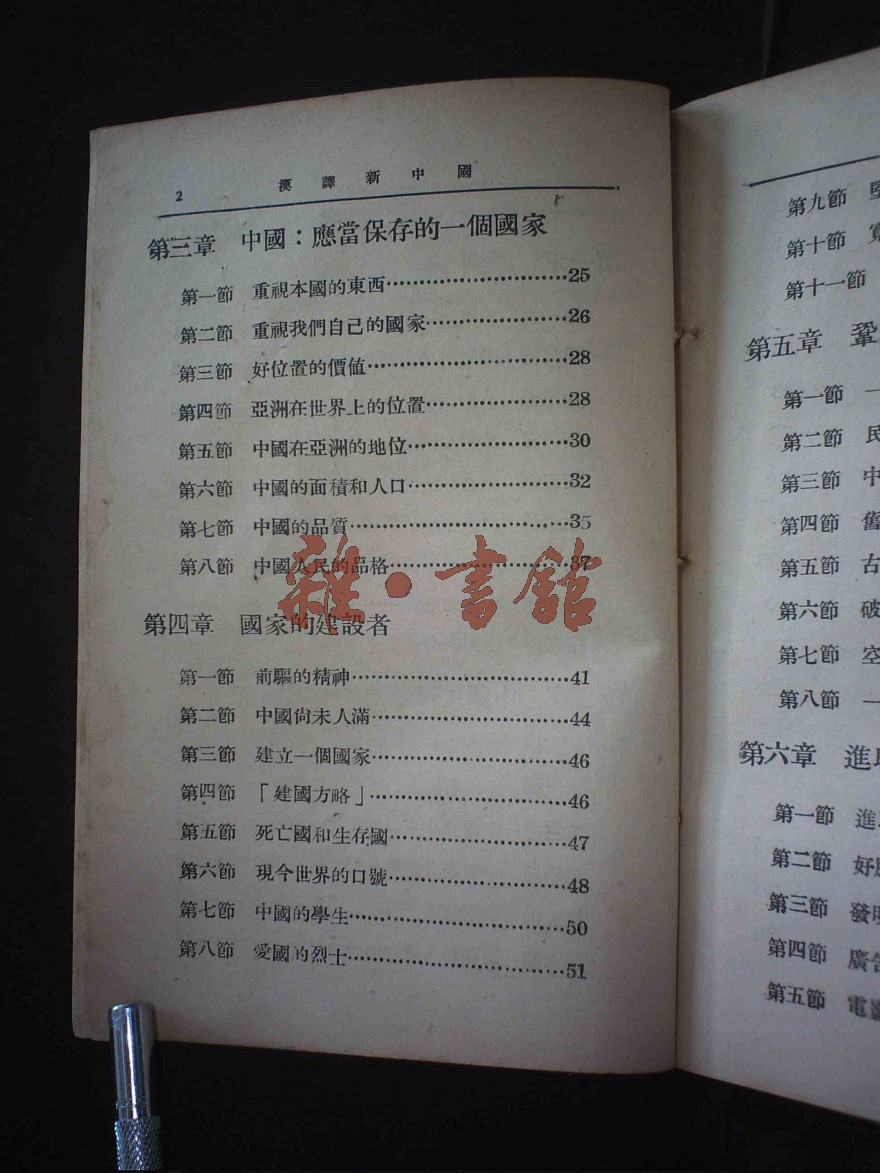 2 漢譯新中國
第三章 中國：應當保存的一個國家
第一節 重視本國的東西⋯⋯⋯⋯⋯⋯25
第二節 重視我們自己的國家⋯⋯⋯⋯⋯⋯26
第三節 好位置的價值⋯⋯⋯⋯⋯⋯28
第四節 亞洲在世界上的位置⋯⋯⋯⋯⋯⋯28
第五節 中國在亞洲的地位⋯⋯⋯⋯⋯⋯30
第六節 中國的面積和人口⋯⋯⋯⋯⋯⋯32
第七節 中國的品質⋯⋯⋯⋯⋯⋯35
第八節 中國人民的品格⋯⋯⋯⋯⋯⋯37
雜·書館
第四章 國家的建設者
第一節 前驅的精神⋯⋯⋯⋯⋯⋯41
第二節 中國尙未人滿⋯⋯⋯⋯⋯⋯44
第三節 建立一個國家⋯⋯⋯⋯⋯⋯46
第四節 「建國方略」⋯⋯⋯⋯⋯⋯46
第五節 死亡國和生存國⋯⋯⋯⋯⋯⋯47
第六節 現今世界的口號⋯⋯⋯⋯⋯⋯48
第七節 中國的學生⋯⋯⋯⋯⋯⋯50
第八節 愛國的烈士⋯⋯⋯⋯⋯⋯51
第九節
第十節
第十一節
第五章
第一節 一
第二節 民
第三節 中
第四節 舊
第五節 古
第六節 破
第七節 空
第八節 一
第六章 進
第一節 進
第二節 好
第三節 發
第四節 廣
第五節 電